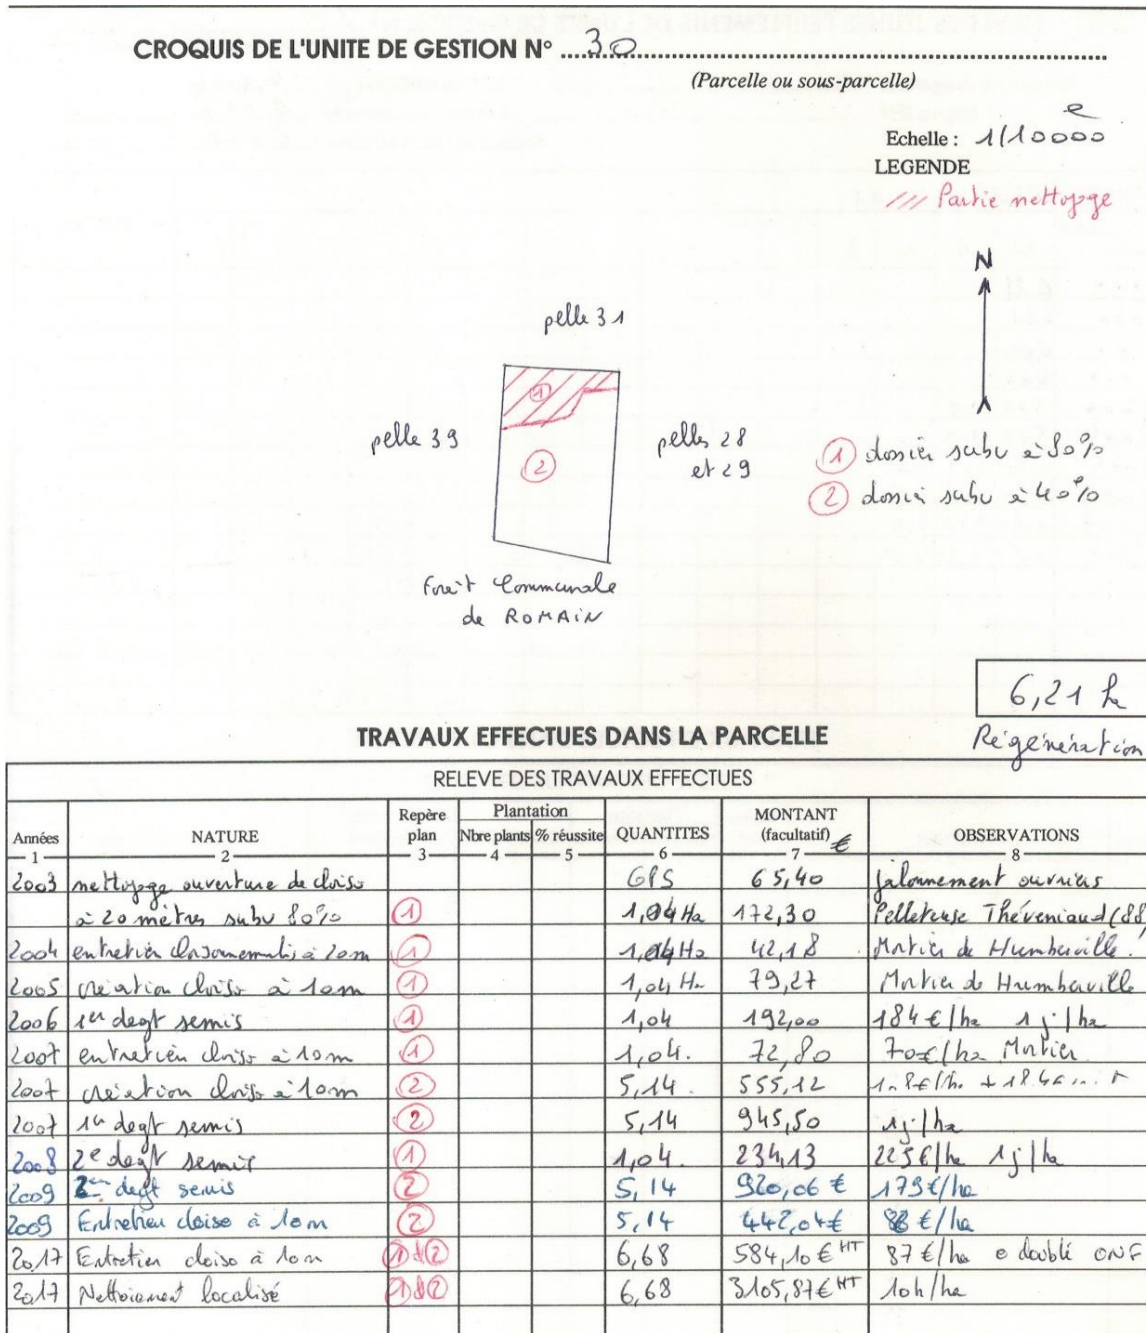 CROQUIS DE L'UNITE DE GESTION N° 30
(Parcelle ou sous-parcelle)
Echelle : 1/10000e
LEGENDE
/// Partie nettoyage
N
pelle 31
①
pelle 39
②
pelles 28
et 29
① dossier subv à 80%
② dossier subv à 40%
Forêt Communale
de ROMAIN
6,21 ha
Régénération
TRAVAUX EFFECTUES DANS LA PARCELLE
RELEVE DES TRAVAUX EFFECTUES
Années 1 NATURE 2 Repère plan 3 Plantation Nbre plants 4 % réussite 5 QUANTITES 6 MONTANT (facultatif) € 7 OBSERVATIONS 8
2003 nettoyage ouverture de cloiso GPS 65,40 jalonnement ouvriers
à 20 mètres subv 80% ① 1,04 Ha 172,30 Pelleteuse Théveniaud (88)
2004 entretien cloisonnements à 20m ① 1,04 Ha 42,18 Mortier de Humberville.
2005 création cloiso à 10m ① 1,04 Ha 79,27 Mortier de Humberville
2006 1er degt semis ① 1,04 192,00 184 €/ha 1 j/ha
2007 entretien cloiso à 10m ① 1,04. 72,80 70€/ha Mortier
2007 création cloiso à 10m ② 5,14. 555,12
2007 1er degt semis ② 5,14 945,50 1j/ha
2008 2e degt semis ① 1,04. 234,13 225€/ha 1j/ha
2009 degt semis ② 5,14 920,06 € 179€/ha
2009 Entretien cloiso à 10m ② 5,14 442,04€ €/ha
2017 Entretien cloiso à 10m ①&② 6,68 584,10 € HT 87 €/ha doublé ONF
2017 Nettoiement localisé ①&② 6,68 3105,87€ HT 10h/ha